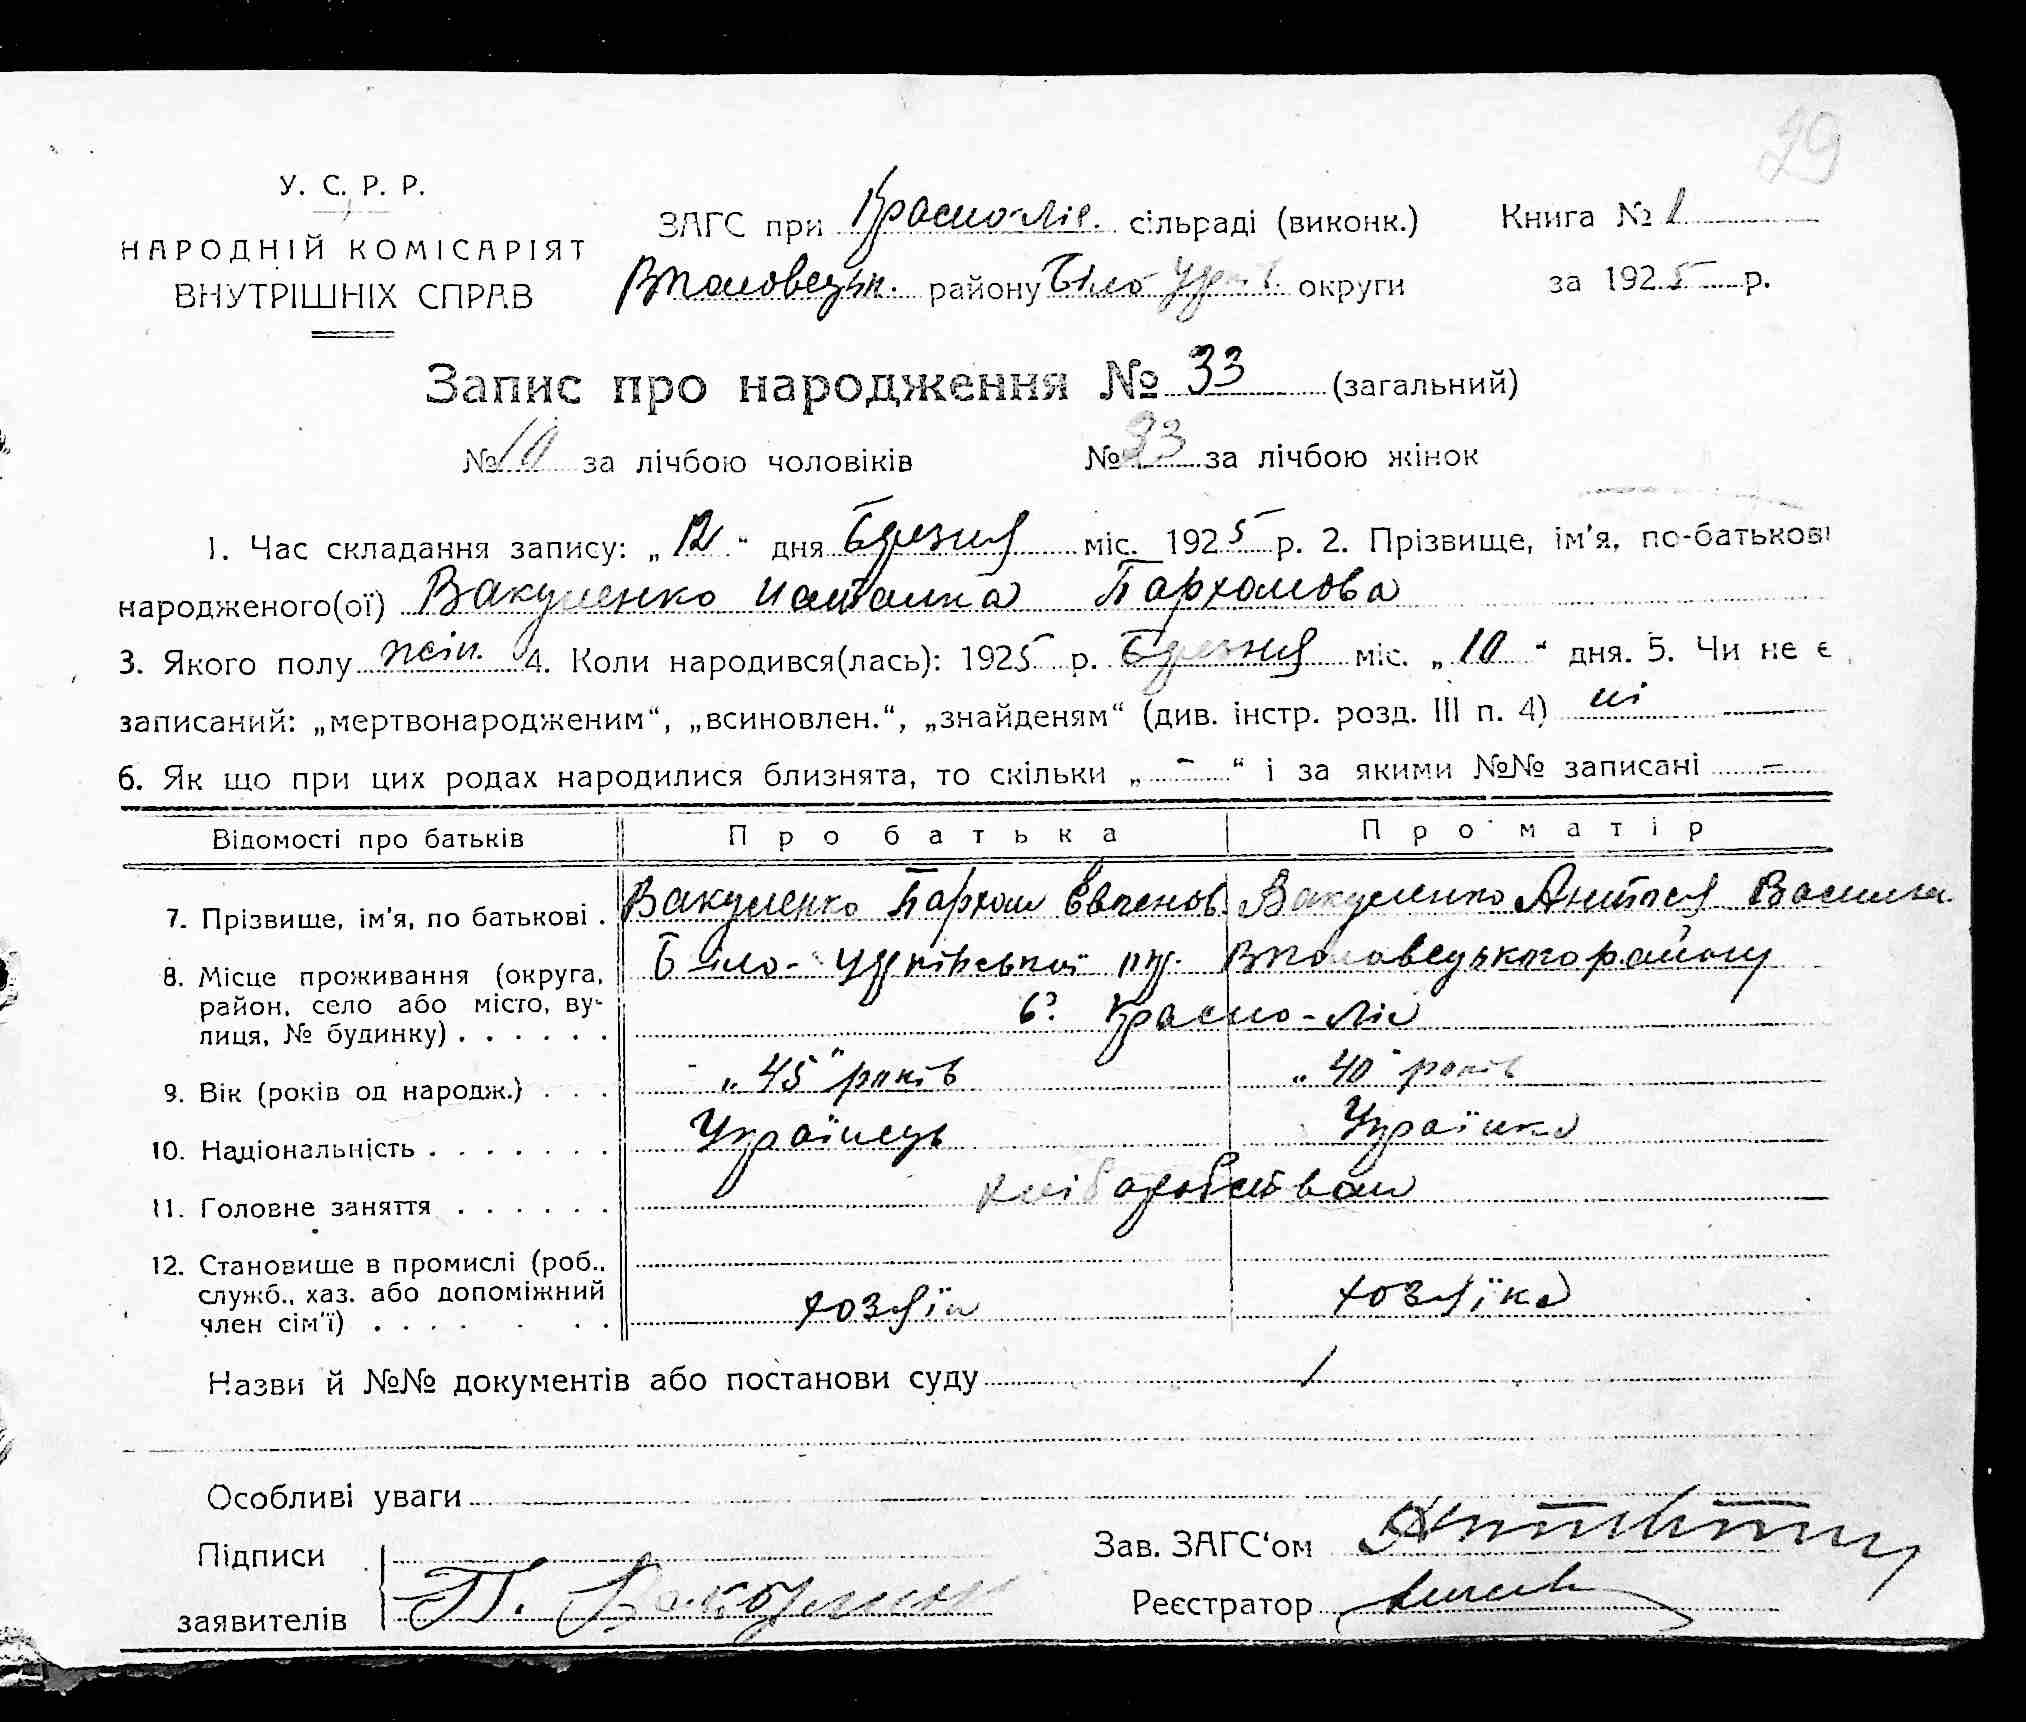 29
У. С. Р. Р.
НАРОДНІЙ КОМІСАРІЯТ
ВНУТРІШНІХ СПРАВ
ЗАГС при Красно-Ліс. сільраді (виконк.) Книга № 1
району Біло Церк. округи за 1925 р.
Запис про народження № 33 (загальний)
№ 10 за лічбою чоловіків № 23 за лічбою жінок
1. Час складання запису: „12" дня Березня міс. 1925 р. 2. Прізвище, ім'я, по-батькові
народженого(ої) Вакуленко Наталка Пархомова
3. Якого полу жін. 4. Коли народився(лась): 1925 р. Березня міс. „10" дня. 5. Чи не є
записаний: „мертвонародженим", „всиновлен.", „знайденям" (див. інстр. розд. III п. 4) ні
6. Як що при цих родах народилися близнята, то скільки „ - " і за якими №№ записані -
Відомості про батьків Про батька Про матір
7. Прізвище, ім'я, по батькові . Вакуленко Пархом Євгенов. Вакуленко Антося Васильв.
8. Місце проживання (округа, Біло-Церківської окр. району
район, село або місто, ву- с. Красно-Ліс
лиця, № будинку) . . . . . .
9. Вік (років од народж.) . . . „45" років „40" років
10. Національність . . . . . . . Українець Українка
11. Головне заняття . . . . . . хліборобством
12. Становище в промислі (роб.,
служб., хаз. або допоміжний хозяїн хозяїка
член сім'ї) . . . . . . .
Назви й №№ документів або постанови суду /
Особливі уваги
Підписи Зав. ЗАГС'ом
заявителів П. Вакуленко Реєстратор